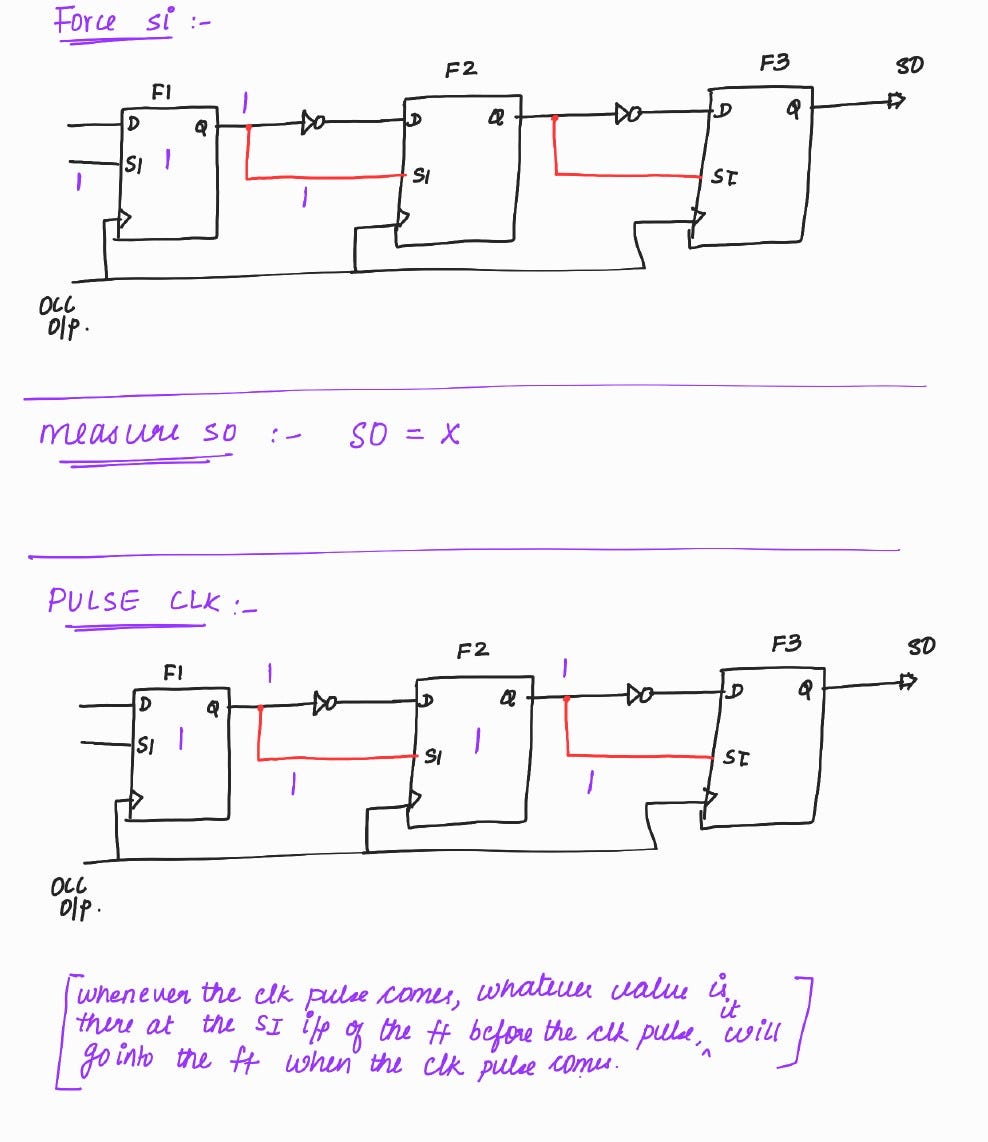 Force si :-
F1
F2
F3
SO
1
D Q
D Q
D Q
SI 1
SI
SI
1
1
OCC
O/P.
measure so :- SO = X
PULSE CLK :-
F1
F2
F3
SO
1
1
D Q
D Q
D Q
SI 1
SI 1
SI
1
1
OCC
O/P.
[whenever the clk pulse comes, whatever value is
there at the SI i/p of the ff before the clk pulse, ^ it will
go into the ff when the clk pulse comes.]